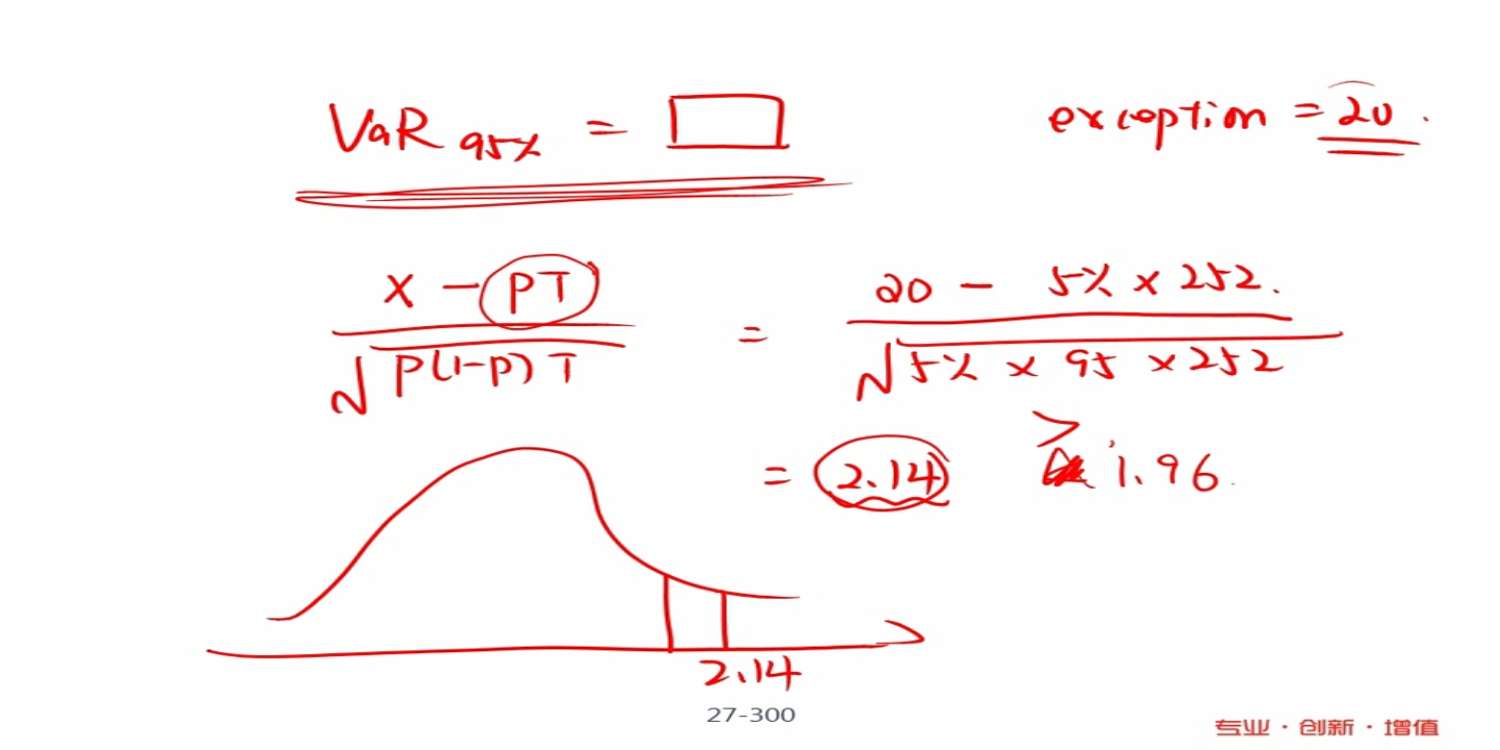 VaR 95% = □
exception = 20.
x - PT / √P(1-P)T = 20 - 5% × 252. / √5% × 95 × 252
= 2.14 > 1.96.
2.14
27-300
专业·创新·增值